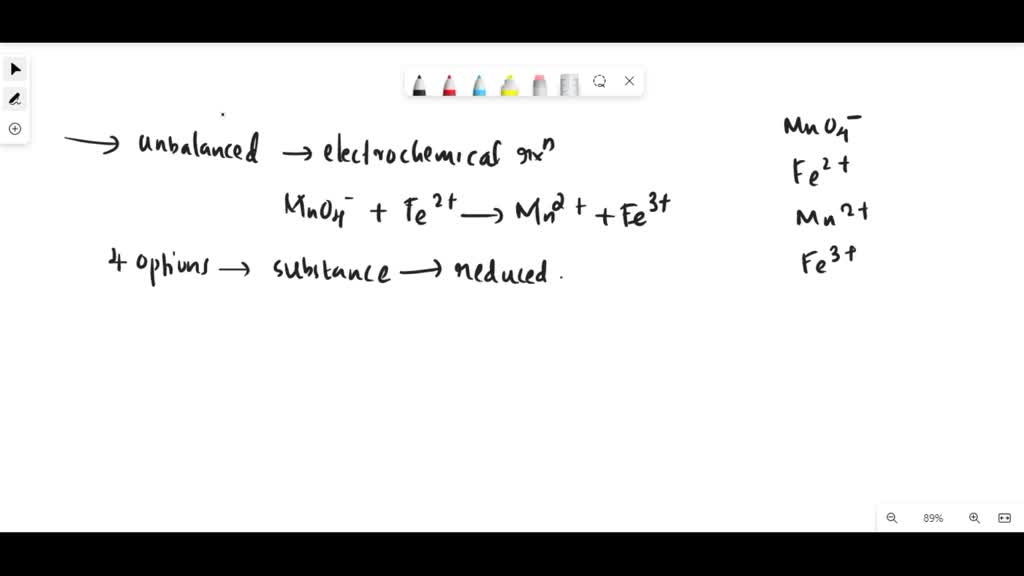 → unbalanced → electrochemical rxⁿ
MnO₄⁻ + Fe²⁺ → Mn²⁺ + Fe³⁺
4 options → substance → reduced.
MnO₄⁻
Fe²⁺
Mn²⁺
Fe³⁺
89%